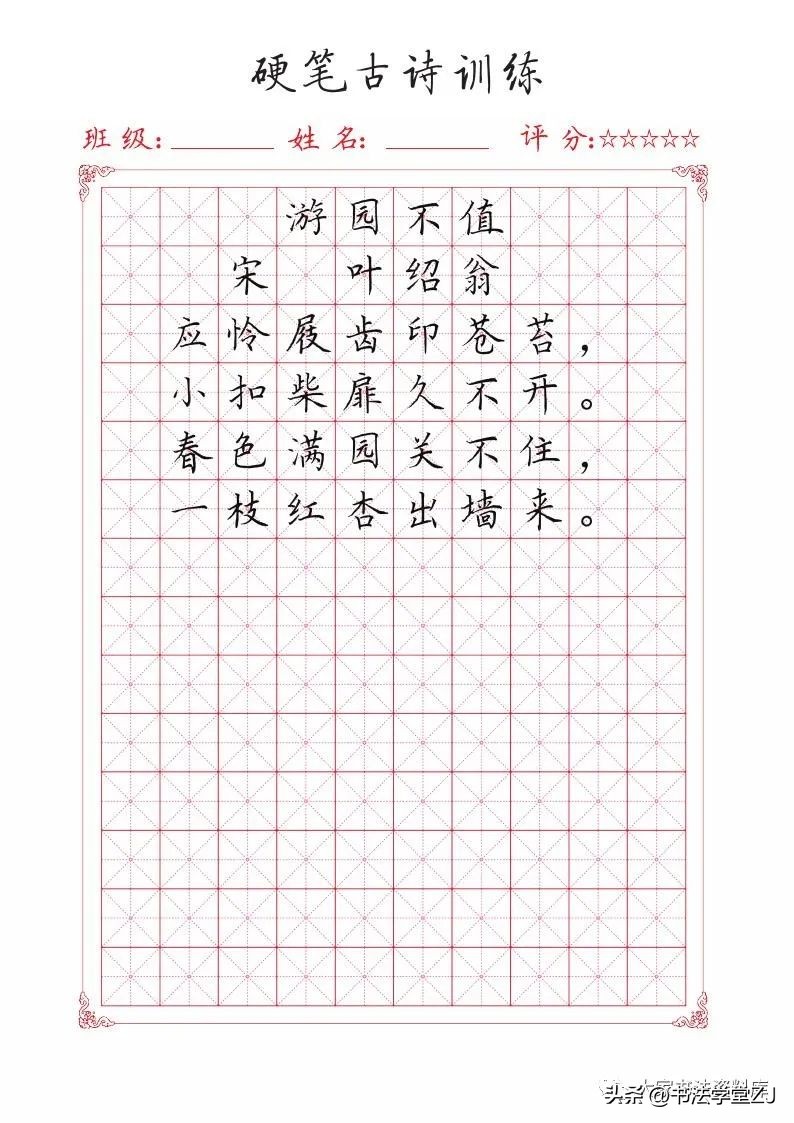 硬笔古诗训练
班级: 姓名: 评分:☆☆☆☆☆
游园不值
宋 叶绍翁
应怜屐齿印苍苔，
小扣柴扉久不开。
春色满园关不住，
一枝红杏出墙来。
大家书法资料库
头条@书法学堂ZJ